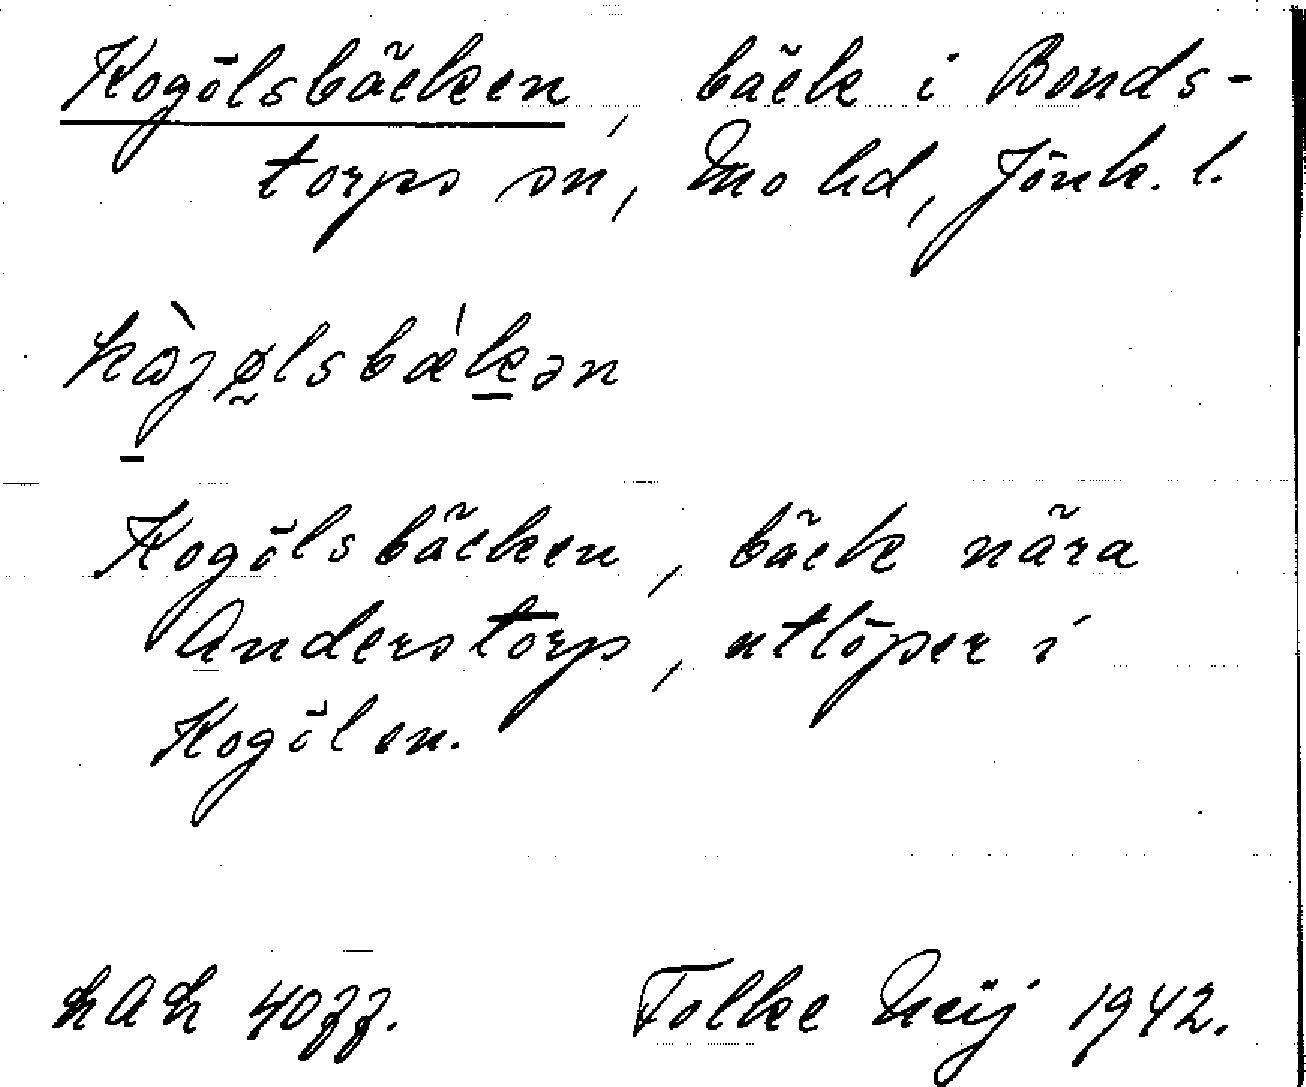 Kogölsbäcken, bäck i Bonds-
torps sn, Mo hd, Jönk. l.
Kogölsbäcken, bäck nära
Anderstorp, utlöper i
Kogölen.
Folke Neij 1942.